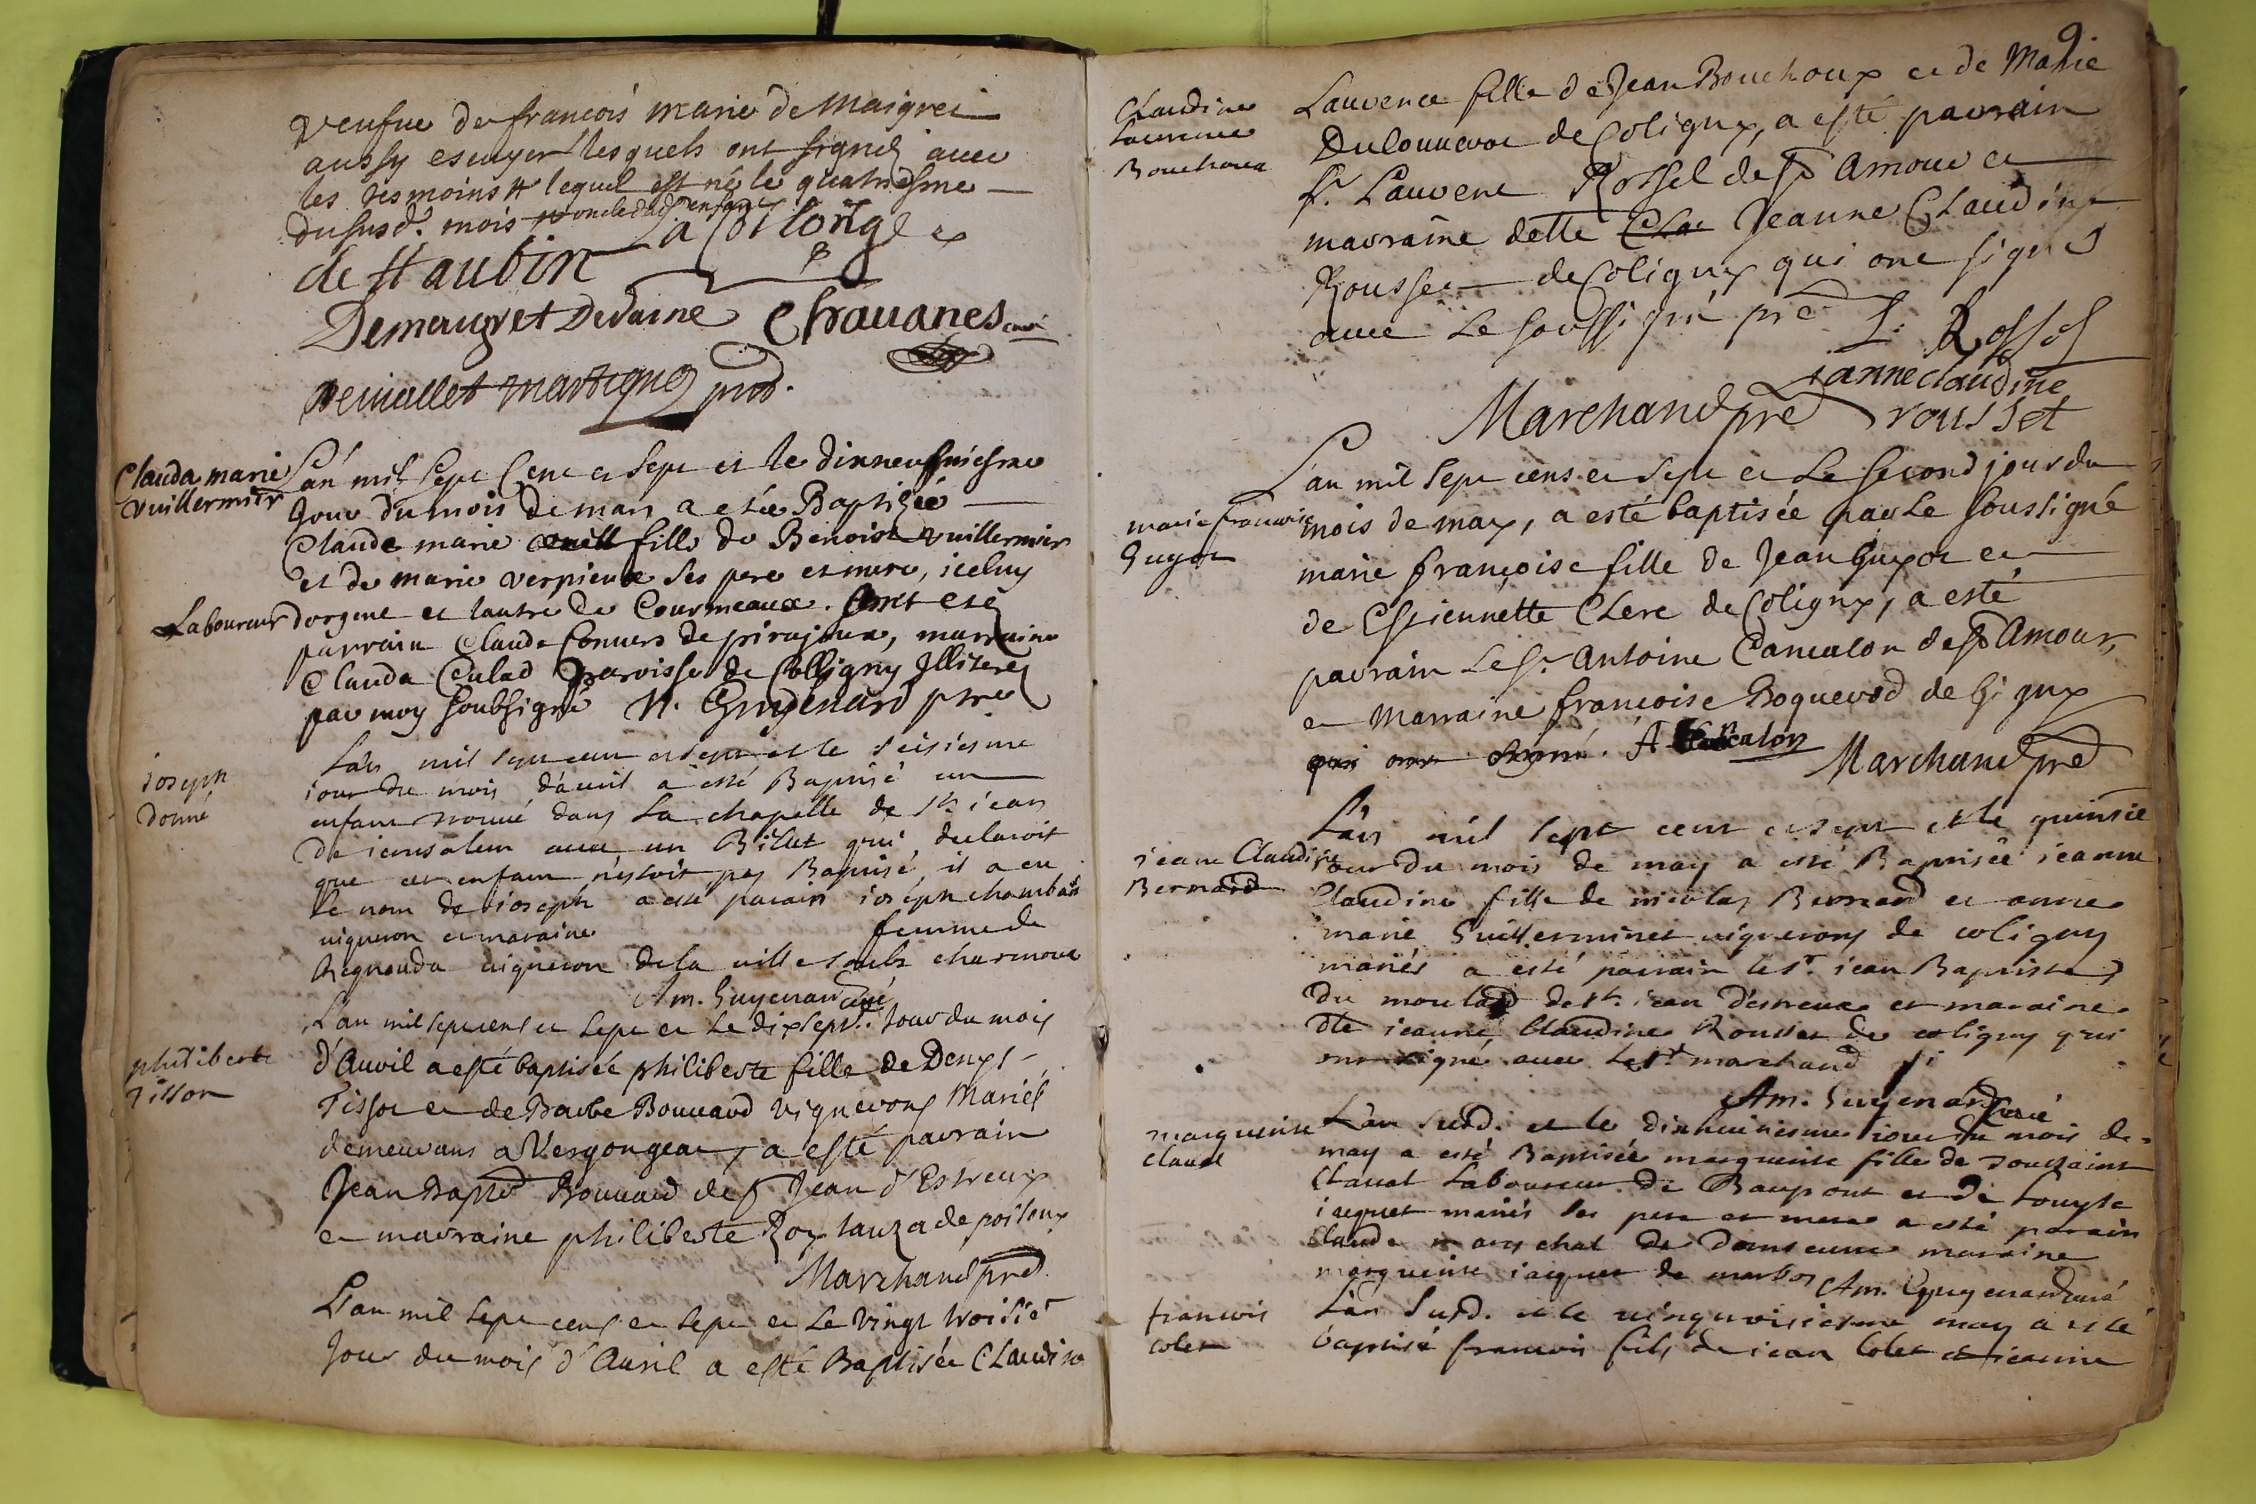 veufue de francois marie de Maigret
aussy escuyer lesquels ont signé avec
les tesmoins lequel est né le quatriesme
du susd. mois
La Coulonge
de St aubin
Demeugret Devaine Chauanes curé
Clauda marie vuillermir
L'an mil Sept Cent et Sept et le dixneufuiesme
Jour du mois de mars a esté Baptisée
Claude marie fille de Benoist vuillermir
et de marie verpieux ses pere et mere, iceluy
Laboureur dorgent et lautre de Courmeaux. Sont esté
parrain Claude Conuers de pirajoux, marraine
Clauda Culad parroisse de Colligny Illiterés
par moy soubsigné N. Guyenard pre
ioseph donné
L'an mil sept cent et sept et le seisiesme
iour du mois d'auril a esté Baptisé un
enfant trouué dans la chapelle de st iean
de ierusalem auec un Billet qui declaroit
que cet enfant n'estoit pas Baptisé, il a eu
le nom de ioseph a esté parain ioseph chambas
uigneron et maraine femme de
uigneron de la uille soubs charmoux
Am. Guyenard curé
philiberte Tissot
L'an mil sept cens et sept et Le dix sept.e Jour du mois
d'Auril a esté baptisée philiberte fille de Denys
Tissot et de Barbe Bouuard vignerons Mariés
demeurans a Vergongeat, a esté parrain
Jean Bapte Bouuard de st Jean d'Estreux
et marraine philiberte Roy de poisoux
Marchand pre
L'an mil sept cens et sept et Le vingt troisie
Jour du mois d'Auril a esté Baptisée Claudine
9
Claudine Laurence Bouchoux
Laurence fille de Jean Bouchoux et de Marie
Du louuerot de Coligny, a esté parrain
Sr. Laurent Rossel de St Amour et
marraine dette Cla Jeanne Claudine
Rousset de Coligny qui ont signé
auec Le soussigné pre L. Rossel
janne claudine rousset
Marchand pre
marie francoise Guyot
L'an mil sept cens et sept et Le second jour du
mois de may, a esté baptisée par Le soussigné
marie françoise fille de Jean Guyot et
de Estiennette Clerc de Coligny, a esté
parrain Le Sr Antoine Cancalon de St Amour,
et Marraine francoise Boquerod de Gigny
qui ont signé. A Cancalon
Marchand pre
ieanne Claudine Bernard
L'an mil sept cent et sept et le quinsie
iour du mois de may a esté Baptisée ieanne
Claudine fille de nicolas Bernard et anne
marie Guillerminet uignerons de coligny
mariés a esté parrain le sr. iean Baptiste
du moulard de st. iean d'estreux et maraine
dte ieanne Claudine Rousset de coligny qui
ont signé auec le sr marchand
Am. Guyenard curé
marguerite Clauat
L'an susd. et le dixhuitiesme iour du mois de
may a esté Baptisée marguerite fille de toussaint
Clauat Laboureur de Beaupont et de Louyse
iaquet mariés ses pere et mere a esté parain
Claude mareschal de domseure maraine
marguerite iaquet de marbos Am. Guyenard curé
francois colet
L'an susd. et le uingtroisiesme may a esté
baptisé francois fils de iean Colet et ieanne